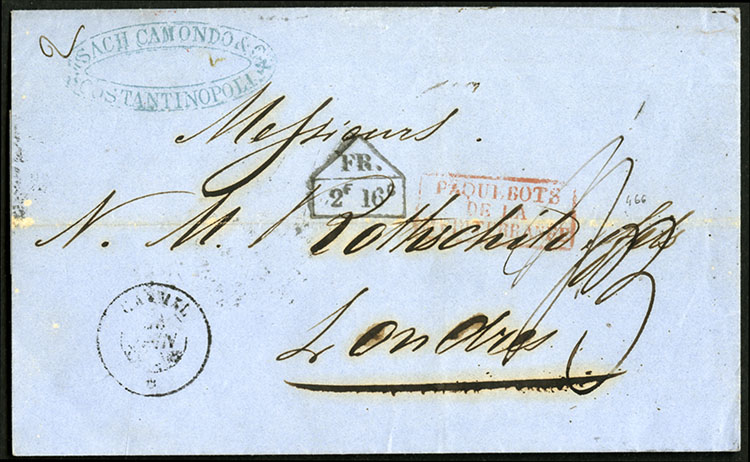 2
CAMONDO & C
COSTANTINOPOLI
Messieurs
FR.
2F 16C
PAQUEBOTS
DE LA
466
N. M. Rothschild
Londres